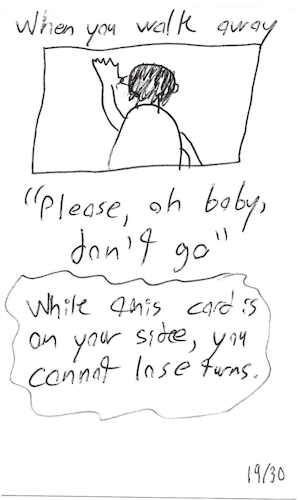 When you walk away
"Please, oh baby,
don't go"
While this card is
on your side, you
cannot lose turns.
19/30